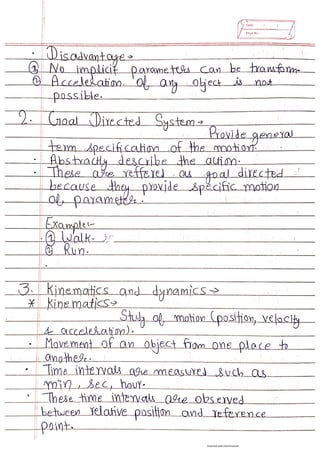 Date
Page No.
· Disadvantage →
① No implicit parameters can be transform.
② Acceleration of any object is not
possible.
2. Goal Directed System →
Provide general
term specification of the motion.
· Abstractly describe the action.
· These are reffered as goal directed
because they provide specific motion
of parameter.
Example:-
① Walk.
② Run.
3. Kinematics and dynamics →
* Kinematics →
Study of motion (position, velocity
& acceleration).
· Movement of an object from one place to
another.
· Time intervals are measured such as
min, sec, hour.
· These time intervals are observed
between relative position and reference
point.